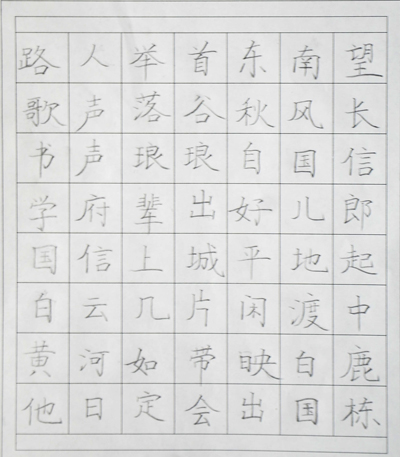 路人举首东南望
歌声落谷秋风长
书声琅琅自国信
学府辈出好儿郎
国信上城平地起
白云几片闲渡中
黄河如带映白鹿
他日定会出国栋